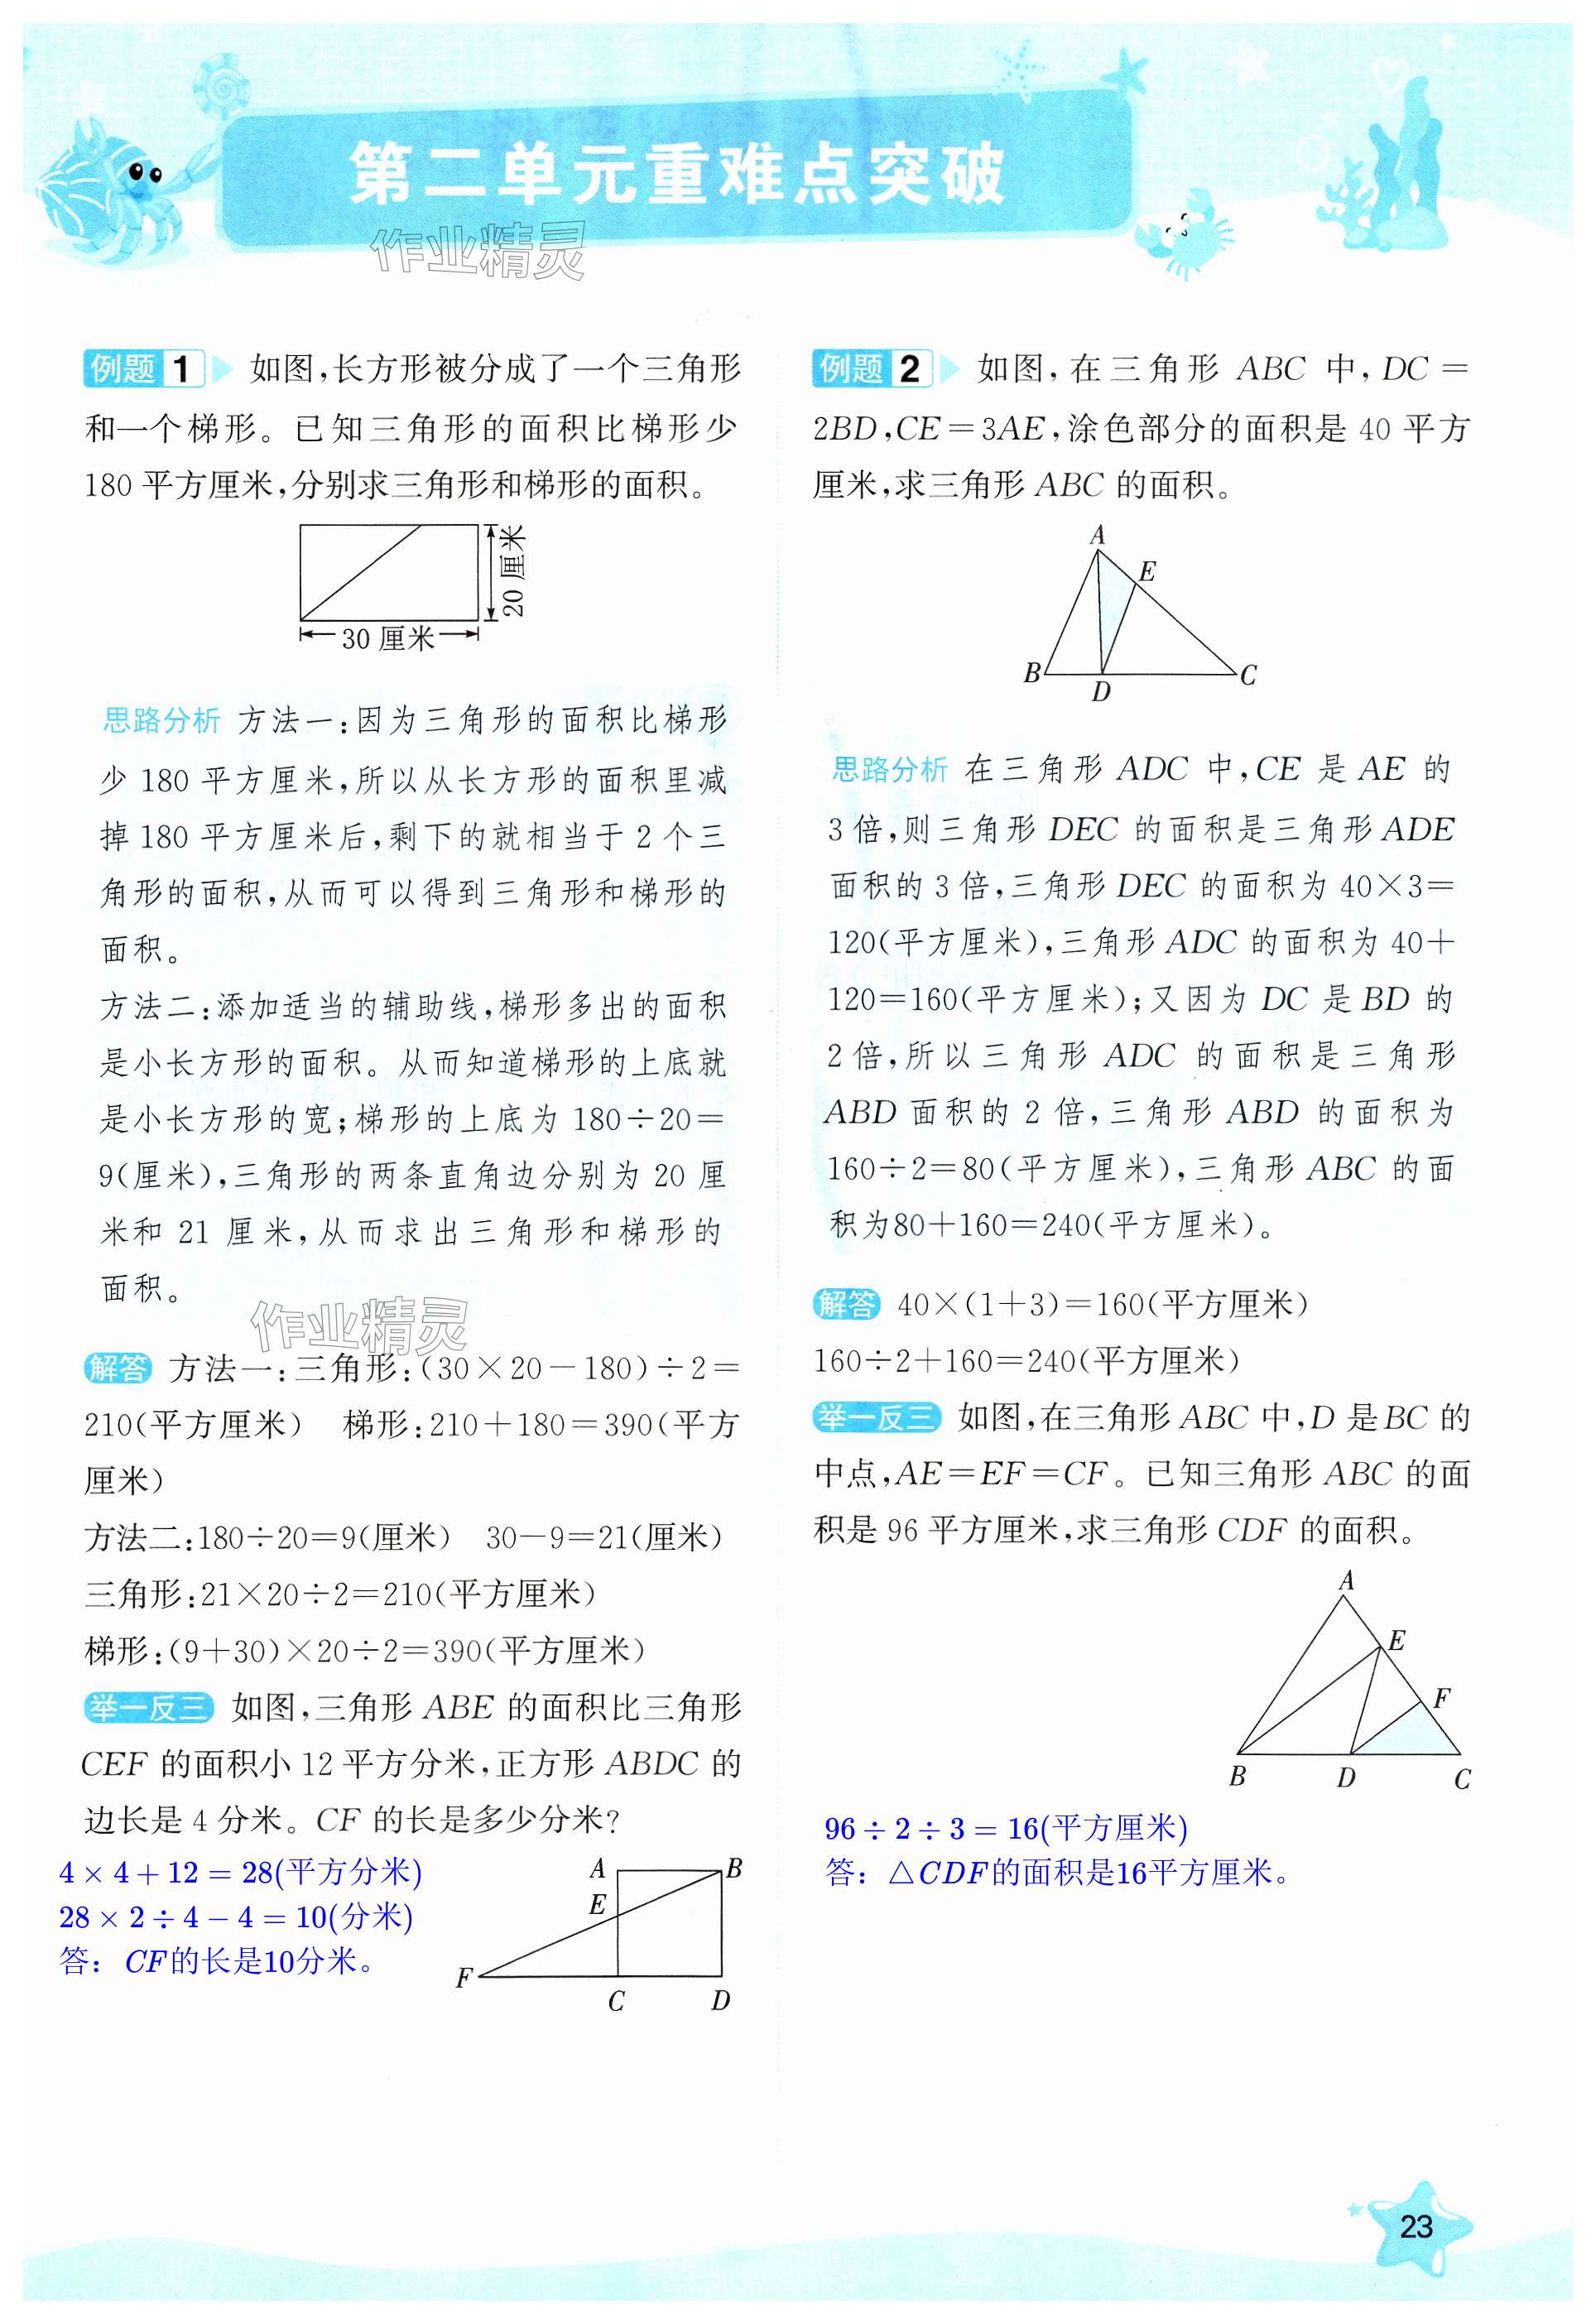 第二单元重难点突破
作业精灵
例题 1 如图,长方形被分成了一个三角形
和一个梯形。已知三角形的面积比梯形少
180 平方厘米,分别求三角形和梯形的面积。
20 厘米
30 厘米
思路分析 方法一:因为三角形的面积比梯形
少 180 平方厘米,所以从长方形的面积里减
掉 180 平方厘米后,剩下的就相当于 2 个三
角形的面积,从而可以得到三角形和梯形的
面积。
方法二:添加适当的辅助线,梯形多出的面积
是小长方形的面积。从而知道梯形的上底就
是小长方形的宽;梯形的上底为 180÷20=
9(厘米),三角形的两条直角边分别为 20 厘
米和 21 厘米,从而求出三角形和梯形的
面积。
作业精灵
解答 方法一:三角形:(30×20-180)÷2=
210(平方厘米) 梯形:210+180=390(平方
厘米)
方法二:180÷20=9(厘米) 30-9=21(厘米)
三角形:21×20÷2=210(平方厘米)
梯形:(9+30)×20÷2=390(平方厘米)
举一反三 如图,三角形 ABE 的面积比三角形
CEF 的面积小 12 平方分米,正方形 ABDC 的
边长是 4 分米。CF 的长是多少分米?
4×4+12=28(平方分米)
28×2÷4-4=10(分米)
答：CF的长是10分米。
A B
E
F
C D
例题 2 如图,在三角形 ABC 中,DC=
2BD,CE=3AE,涂色部分的面积是 40 平方
厘米,求三角形 ABC 的面积。
A
E
B C
D
思路分析 在三角形 ADC 中,CE 是 AE 的
3 倍,则三角形 DEC 的面积是三角形 ADE
面积的 3 倍,三角形 DEC 的面积为 40×3=
120(平方厘米),三角形 ADC 的面积为 40+
120=160(平方厘米);又因为 DC 是 BD 的
2 倍,所以三角形 ADC 的面积是三角形
ABD 面积的 2 倍,三角形 ABD 的面积为
160÷2=80(平方厘米),三角形 ABC 的面
积为80+160=240(平方厘米)。
解答 40×(1+3)=160(平方厘米)
160÷2+160=240(平方厘米)
举一反三 如图,在三角形 ABC 中,D 是 BC 的
中点,AE=EF=CF。已知三角形 ABC 的面
积是 96 平方厘米,求三角形 CDF 的面积。
A
E
F
B D C
96÷2÷3=16(平方厘米)
答：△CDF的面积是16平方厘米。
23